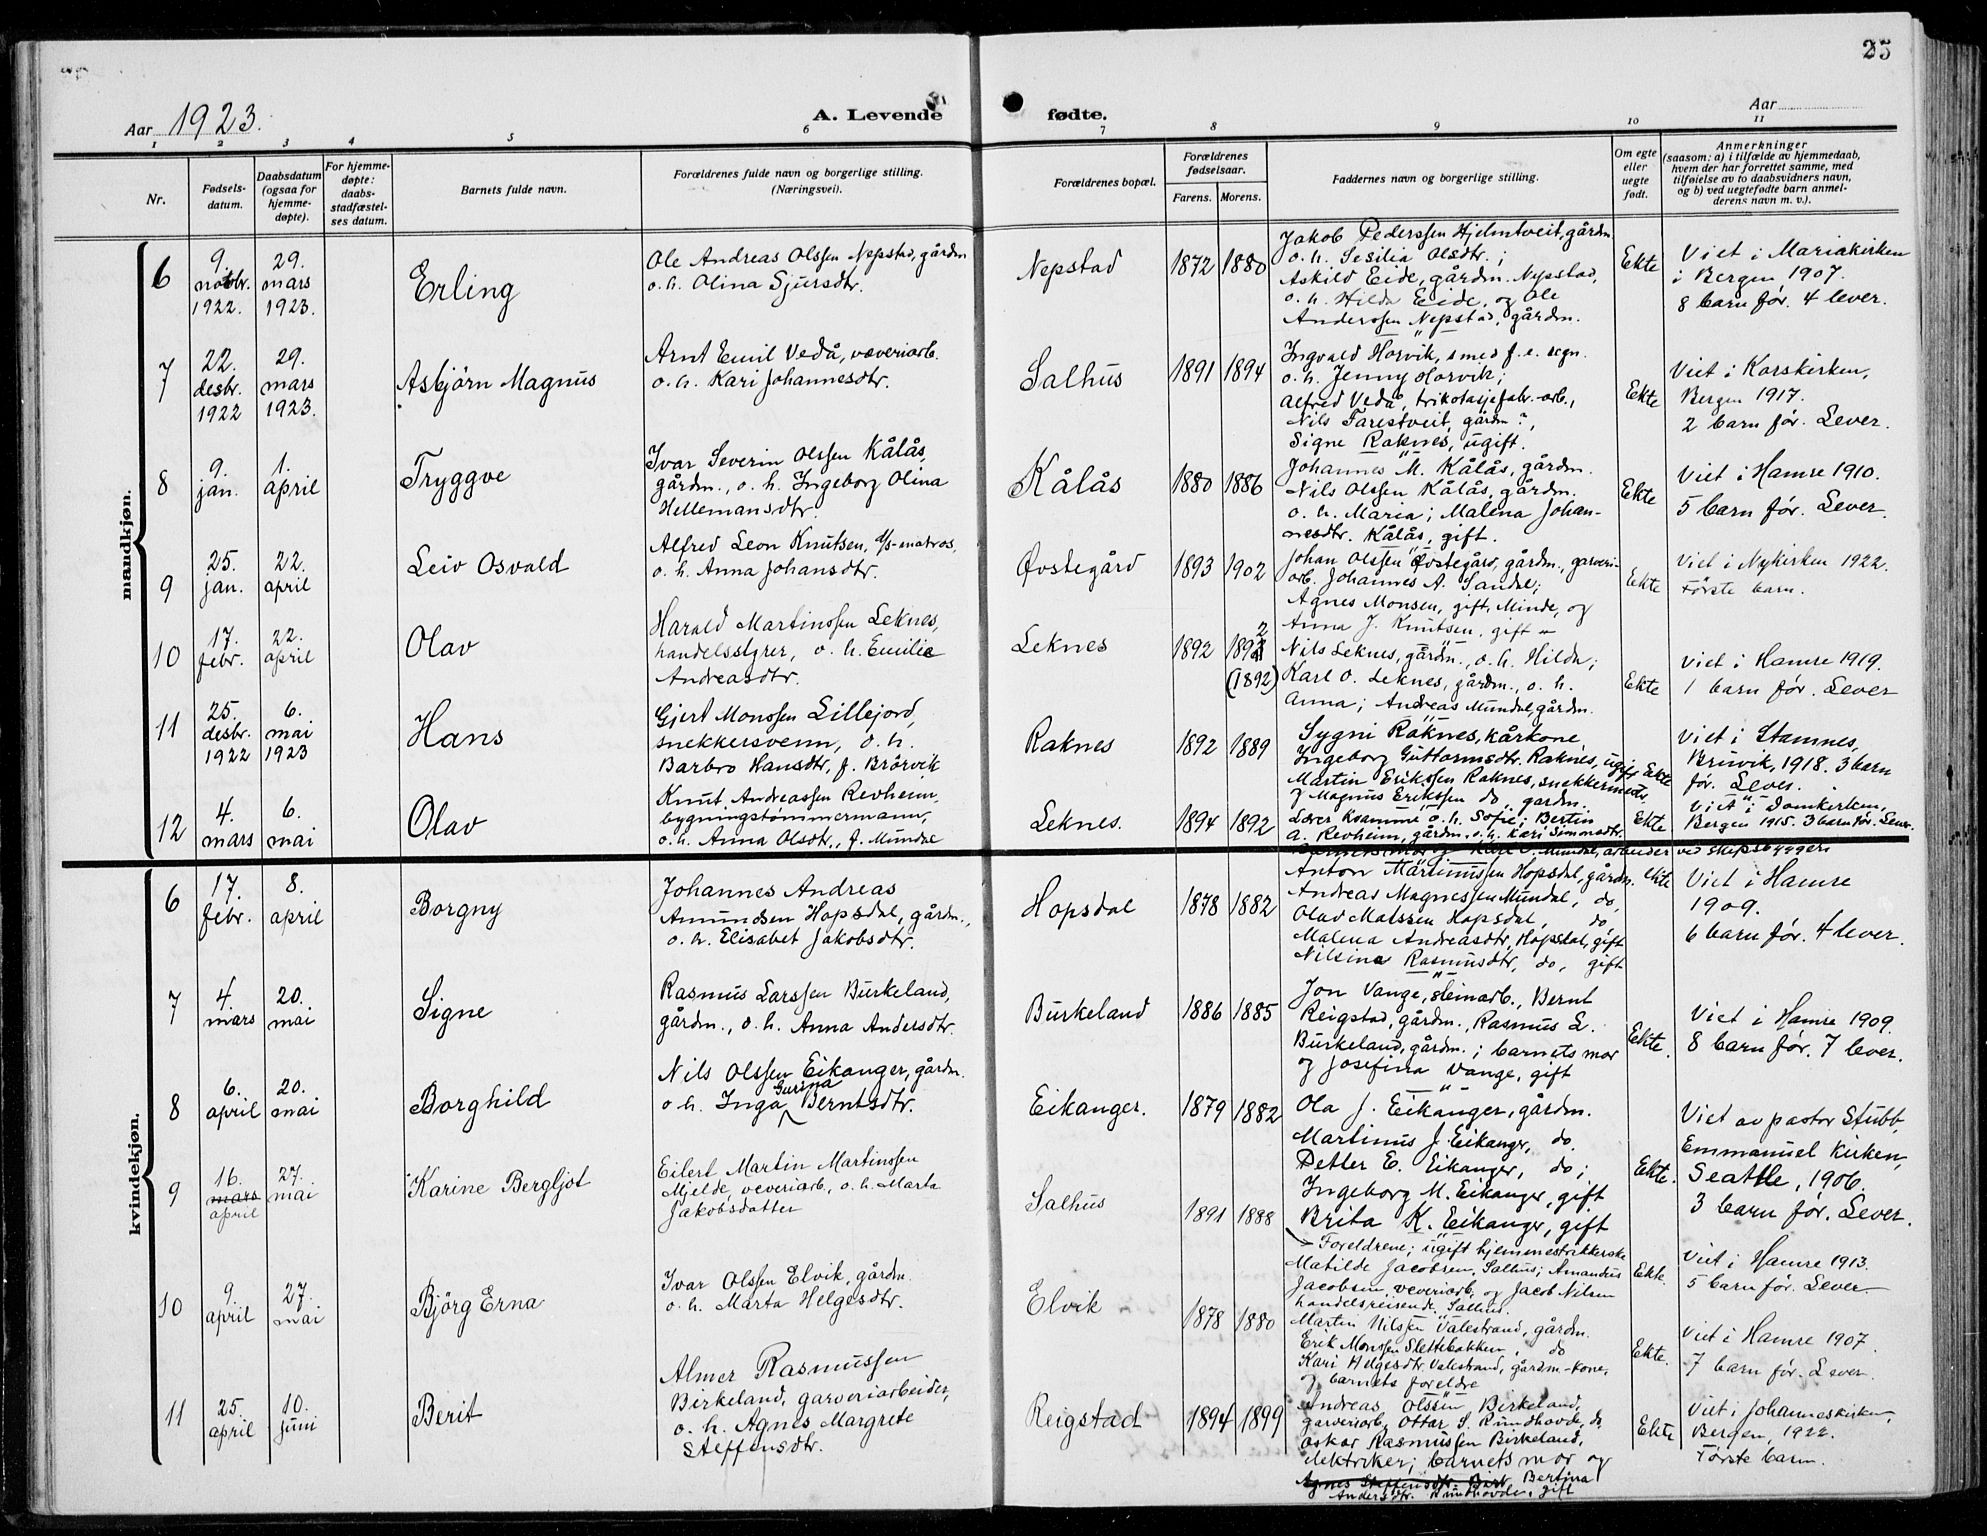 25
Aar 1923.
A. Levende fødte.
Aar
1 2 3 4 5 6 7 8 9 10 11
Nr.
Fødsels-
datum.
Daabsdatum
(ogsaa for
hjemme-
døpte).
For hjemme-
døpte:
daabs-
stadfæstel-
ses datum.
Barnets fulde navn.
Forældrenes fulde navn og borgerlige stilling.
(Næringsvei).
Forældrenes bopæl.
Forældrenes
fødselsaar.
Farens. Morens.
Faddernes navn og borgerlige stilling.
Om egte
eller
uegte
født.
Anmerkninger
(saasom: a) i tilfælde av hjemmedaab,
hvem der har forrettet samme, med
tilføielse av to daabsvidners navn,
og b) ved uegtefødte barn anmel-
derens navn m. v.).
mandkjøn.
6
9.
novbr.
1922.
29.
mars
1923.
Erling
Ole Andreas Olssen Nepstad, gårdm
o. h. Olina Sjursdtr.
Nepstad
1872 1880
Jakob Pederssen Hjelmtveit, gårdm
o. h. Sesilia Olsdtr.;
Askild Eide, gårdm. Nepstad,
o. h. Hilda Eide, og Ole
Anderssen Nepstad, gårdm.
Ekte
Viet i Mariakirken
i Bergen 1907.
8 barn før. 4 lever.
7
22.
desbr.
1922
29.
mars
1923.
Asbjörn Magnus
Arnt Emil Vedå, væveriarb.
o. h. Kari Johannesdtr.
Salhus
1891 1894
Ingvald Horvik, smed f. e. regn.
o. h. Jenny Horvik;
Alfred Vedå, trikotasjefabr.-arb.,
Nils Farestveit, gårdm?,
Signe Raknes, ugift.
Ekte
Viet i Korskirken,
Bergen 1917.
2 barn før. Lever.
8
9.
jan.
1.
april
Tryggve
Ivar Severin Olssen Kålås,
gårdm., o. h. Ingeborg Olina
Hellemansdtr.
Kålås
1880 1886
Johannes M. Kålås, gårdm.
Nils Olssen Kålås, gårdm.
o. h. Maria; Malena Johan-
nesdtr. Kålås, gift.
Ekte
Viet i Hamre 1910.
5 barn før. Lever.
9
25.
jan.
22.
april
Leiv Osvald
Alfred Leon Knutsen, d/s-matros,
o. h. Anna Johansdtr.
Øvstegård
1893 1902
Johan Olssen Øvstegård, gårdm., garveri-
arb. Johannes A. Sandre;
Agnes Monsen, gift, Minde, og
Anna J. Knutsen, gift
Ekte
Viet i Nykirken 1922.
Første barn.
10
17.
febr.
22.
april
Olav
Harald Martinssen Leknes,
handelsstyrer, o. h. Emilie
Andreasdtr.
Leknes
1892 1892
(1892)
Nils Leknes, gårdm., o. h. Hilda;
Karl O. Leknes, gårdm., o. h.
Anna; Andreas Mundal, gårdm.
Ekte
Viet i Hamre 1919.
1 barn før. Lever
11
25.
desbr.
1922
6.
mai
1923
Hans
Gjert Monssen Lillejord,
snekkersvenn, o. h.
Barbro Hansdtr, f. Brörvik
Raknes
1892 1889
Sygni Raknes, kårkone
Ingeborg Guttormsdtr. Raknes, ugift
Martin Erikssen Raknes, snekkermestr.
og Magnus Erikssen do, gardm.
Ekte
Viet i Stamnes,
Bruvik, 1918. 3 barn
før. Lever.
12
4.
mars
6.
mai
Olav
Knut Andreassen Revheim,
bygningstømmermann,
o. h. Anna Olsdtr., f. Mundal
Leknes.
1894 1892
Lærer Kramme o. h. Sofie; Bertin
A. Revheim, gårdm. o. h. Kari Simonsdtr.
Barnets mor og Karl O. Mundal, arbeider ved skipsbyggeri
Ekte
Viet i Domkirken,
Bergen 1915. 3 barn før. Lever.
kvindekjøn.
6
17.
febr.
8.
april
Borgny
Johannes Andreas
Amundsen Hopsdal, gårdm.,
o. h. Elisabet Jakobsdtr.
Hopsdal
1878 1882
Anton Martinussen Hopsdal, gårdm.
Andreas Magnessen Mundal, do,
Olav Matssen Hopsdal, do
Malena Andreasdtr, Hopsdal, gift
Nilsine Rasmusdtr, do, gift
ekte
Viet i Hamre
1909.
6 barn før. 4 lever.
7
4.
mars
20.
mai
Signe
Rasmus Larssen Burkeland,
gårdm., o. h. Anna Andersdtr.
Burkeland
1886 1885
Jon Vange, steinarb., Bernt
Reigstad, gårdm., Rasmus L.
Burkeland, gårdm.; barnets mor
og Josefina Vange, gift
Ekte.
Viet i Hamre 1909.
8 barn før. 7 lever.
8
6.
april
20.
mai
Borghild
Nils Olssen Eikanger, gårdm.
o h. Inga Gurina Berntsdtr.
Eikanger.
1879 1882
Ola J. Eikanger, gårdm.
Martinus J. Eikanger, do
Petter E. Eikanger, do;
Ingeborg M. Eikanger, gift
Brita K. Eikanger, gift
Ekte.
Viet av pastor Stubb,
Emmanuel Kirken,
Seattle, 1906.
3 barn før. Lever.
9
16.
mars
april
27.
mai
Karine Bergljot
Eilert Martin Martinssen
Mjelde, veveriarb., o. h. Marta
Jakobsdatter
Salhus
1891 1888
Foreldrene; ugift hjemmestrikkerske
Matilde Jacobsen, Salhus; Amandus
Jacobsen, veveriarb., og Jacob Nilsen
handelsreisende, Salhus.
Ekte.
Viet i Hamre 1913.
5 barn før. Lever.
10
9
april
27.
mai
Bjørg Erna
Ivar Olssen Elvik, gårdm.
o. h. Marta Helgesdtr.
Elvik
1878 1880
Martin Nilssen Valestrand, gårdm.
Erik Monssen Slettebakken, do
Kari Helgesdtr. Valestrand, gårdm-kone,
og barnets foreldre
Ekte.
Viet i Hamre 1907.
7 barn før. Lever.
11
25.
april
10.
juni
Berit
Almer Rasmussen
Birkeland, garveriarbeider,
o. h. Agnes Margrete
Steffensdtr.
Reigstad
1894 1899
Andreas Olssen Birkeland,
garveriarb., Ottar S. Rundhovde, do
Oskar Rasmussen Birkeland,
elektriker; barnets mor og
Agnes Steffensdtr. Birk. Bertina
Andersdtr. Rundhovde, gift
Ekte
Viet i Johanneskirken,
Bergen, 1922.
Første barn.